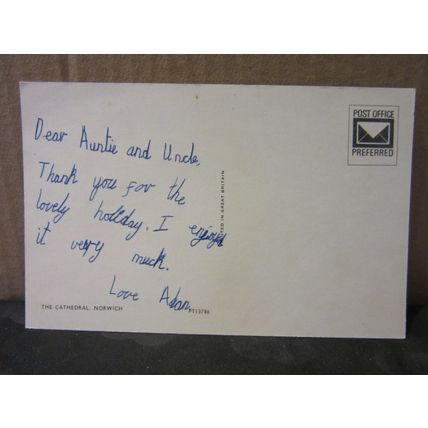 Dear Auntie and Uncle,
Thank you for the
lovely holiday. I enjoyed
it very much.
Love Adam
POST OFFICE
PREFERRED
PRINTED IN GREAT BRITAIN
THE CATHEDRAL, NORWICH
PT13786